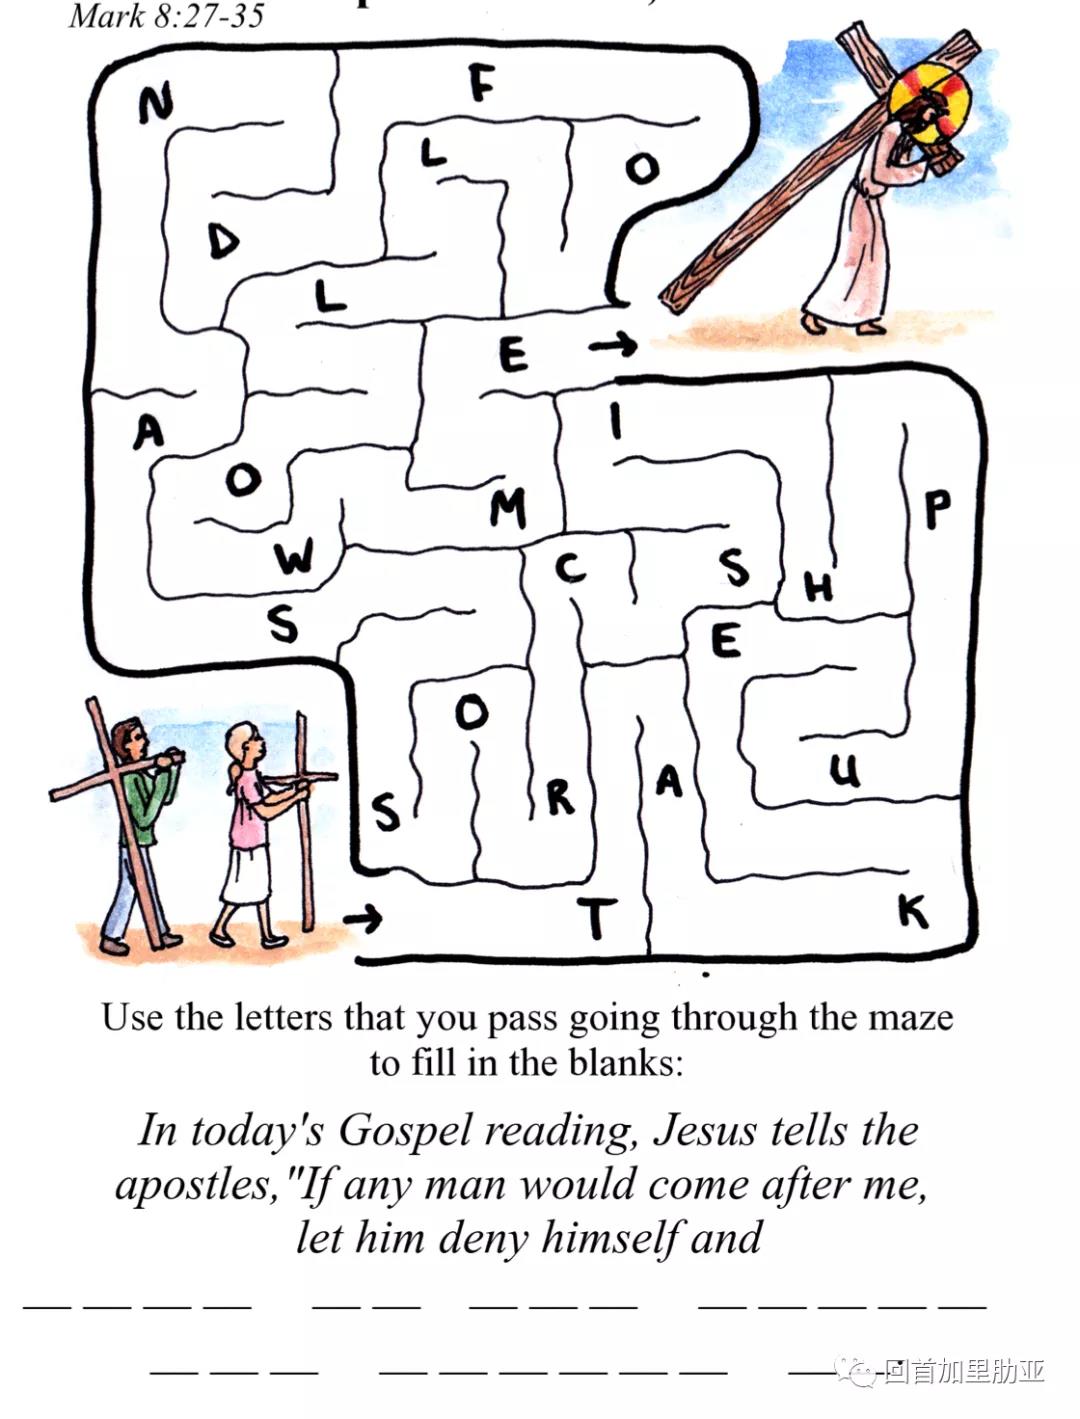 Mark 8:27-35
N F
L O
D
L
E →
I
A
O M P
W C S H
S E
O
U
S R A
→ T K
Use the letters that you pass going through the maze
to fill in the blanks:
In today's Gospel reading, Jesus tells the
apostles,"If any man would come after me,
let him deny himself and
回首加里肋亚